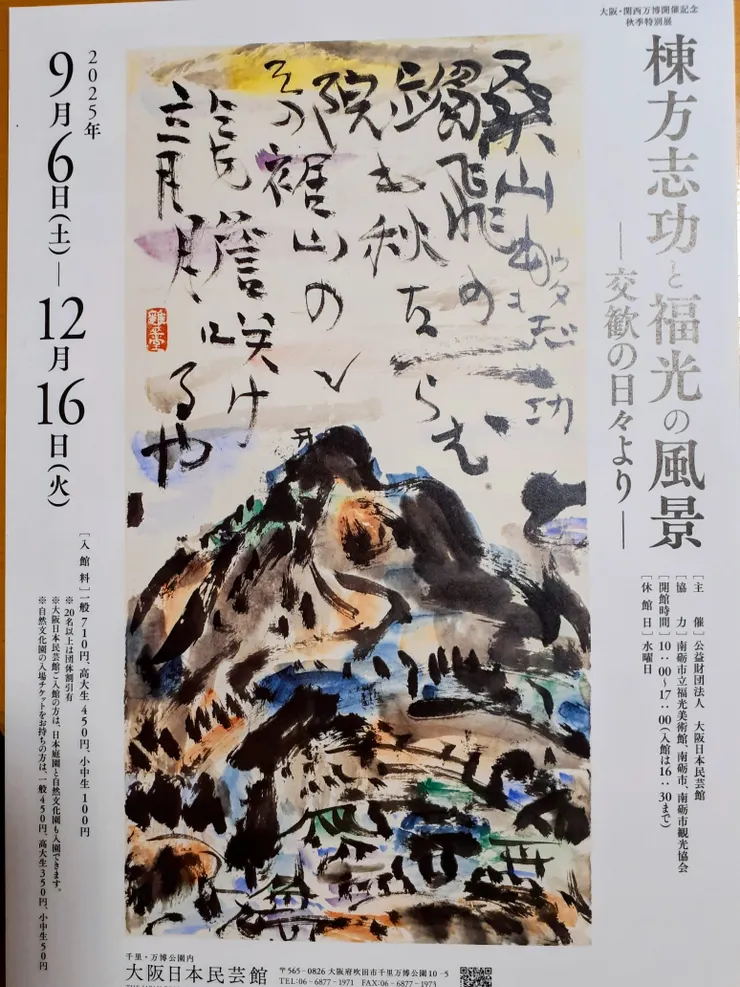 大阪・関西万博開催記念
秋季特別展
棟方志功と福光の風景
―交歓の日々より―
[主催]公益財団法人 大阪日本民芸館
[協力]南砺市立福光美術館、南砺市、南砺市観光協会
[開館時間]10:00~17:00(入館は16:30まで)
[休館日]水曜日
桑山
躅飛の
院も秋たらむ
その裾山の
龍胆咲けるや
2025年
9月6日(土)―12月16日(火)
[入館料]一般710円、高大生450円、小中生100円
※20名以上は団体割引有
※大阪日本民芸館ご入館の方は、日本庭園と自然文化園も入園できます。
※自然文化園の入場チケットをお持ちの方は、一般450円、高大生350円、小中生50円
千里・万博公園内
大阪日本民芸館
〒565-0826 大阪府吹田市千里万博公園10-5
TEL:06-6877-1971 FAX:06-6877-1973